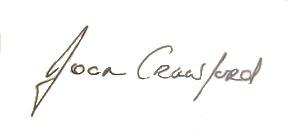 Joan Crawford